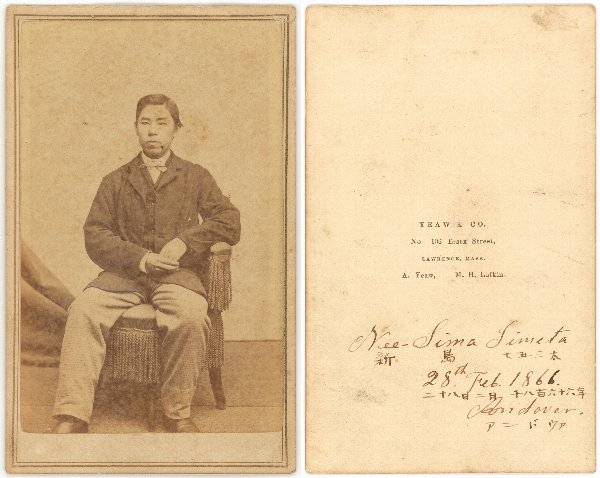 YEAW & CO.
No Essex Street,
LAWRENCE, MASS.
A. Yeaw, M. H. Lufkin.
Nee-Sima Simeta
新 島 七五三太
28th Feb. 1866.
二十八日二月 千八百六十六年
Andover.
アンドヴァ